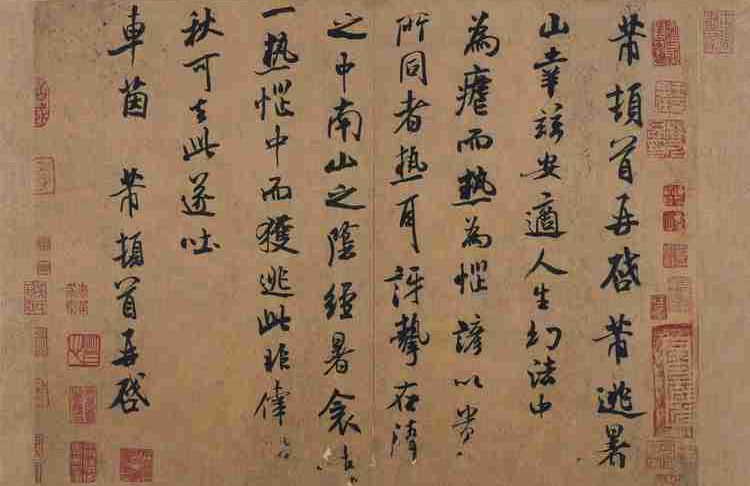 芾頓首再啓芾逃暑
山幸兹安適人生幻法中
為瘧而熱為惱諺以貴
所同者熱耳訝挈在清
之中南山之陰經暑衾
一熱惱中而獲逃此非幸
秋可去此遂吐
車茵 芾頓首再啓